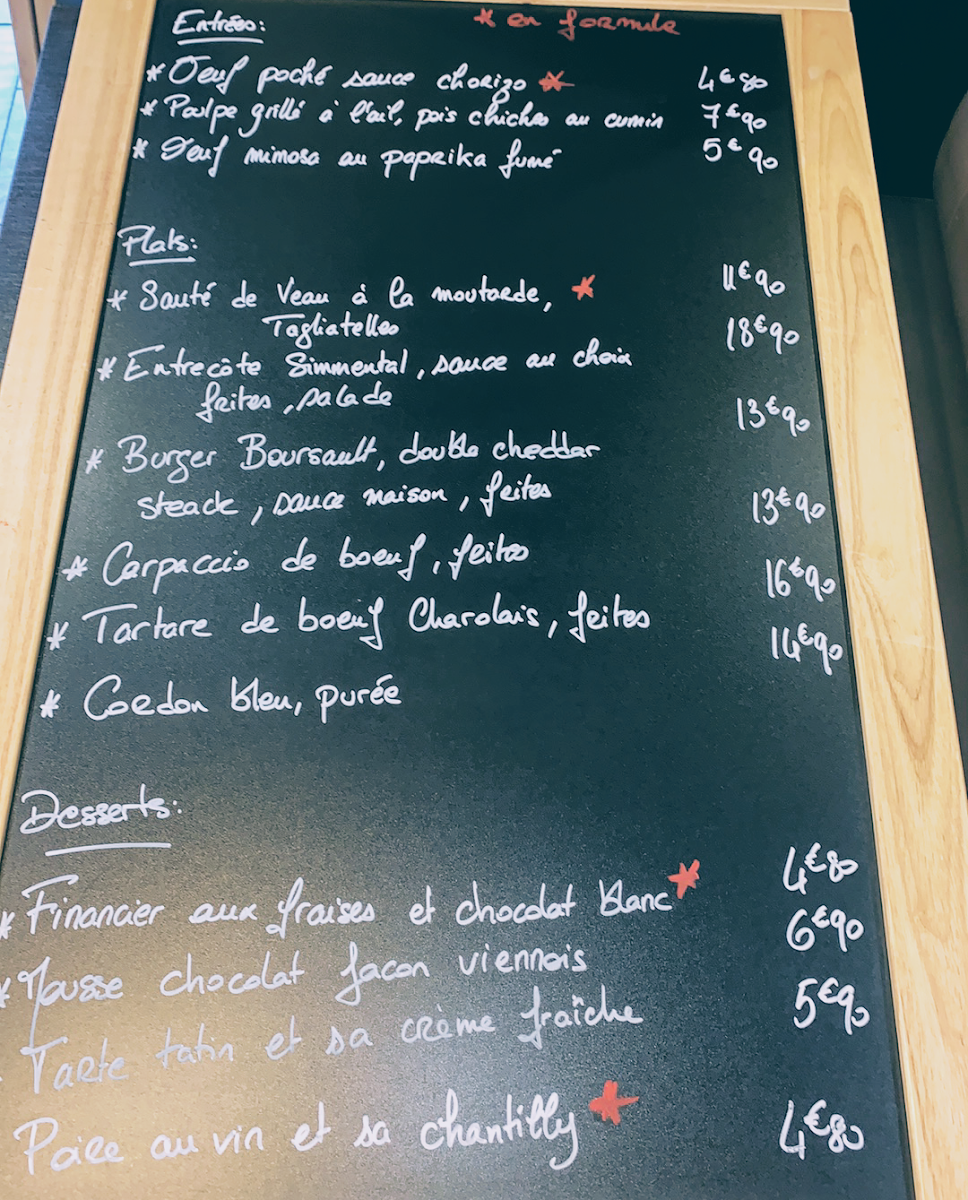 Entrées: * en formule
* Oeuf poché sauce chorizo * 4€80
* Poulpe grillé à l'ail, pois chiches au cumin 7€90
* Oeuf mimosa au paprika fumé 5€90
Plats:
* Sauté de Veau à la moutarde, * 11€90
Tagliatelles
18€90
* Entrecôte Simmental, sauce au choix
frites, salade
13€90
* Burger Boursault, double cheddar
steack, sauce maison, frites
13€90
* Carpaccio de boeuf, frites
16€90
* Tartare de boeuf Charolais, frites
14€90
* Cordon bleu, purée
Desserts:
4€80
* Financier aux fraises et chocolat blanc *
6€90
* Mousse chocolat facon viennois
5€90
Tarte tatin et sa crème fraîche
Poire au vin et sa chantilly * 4€80